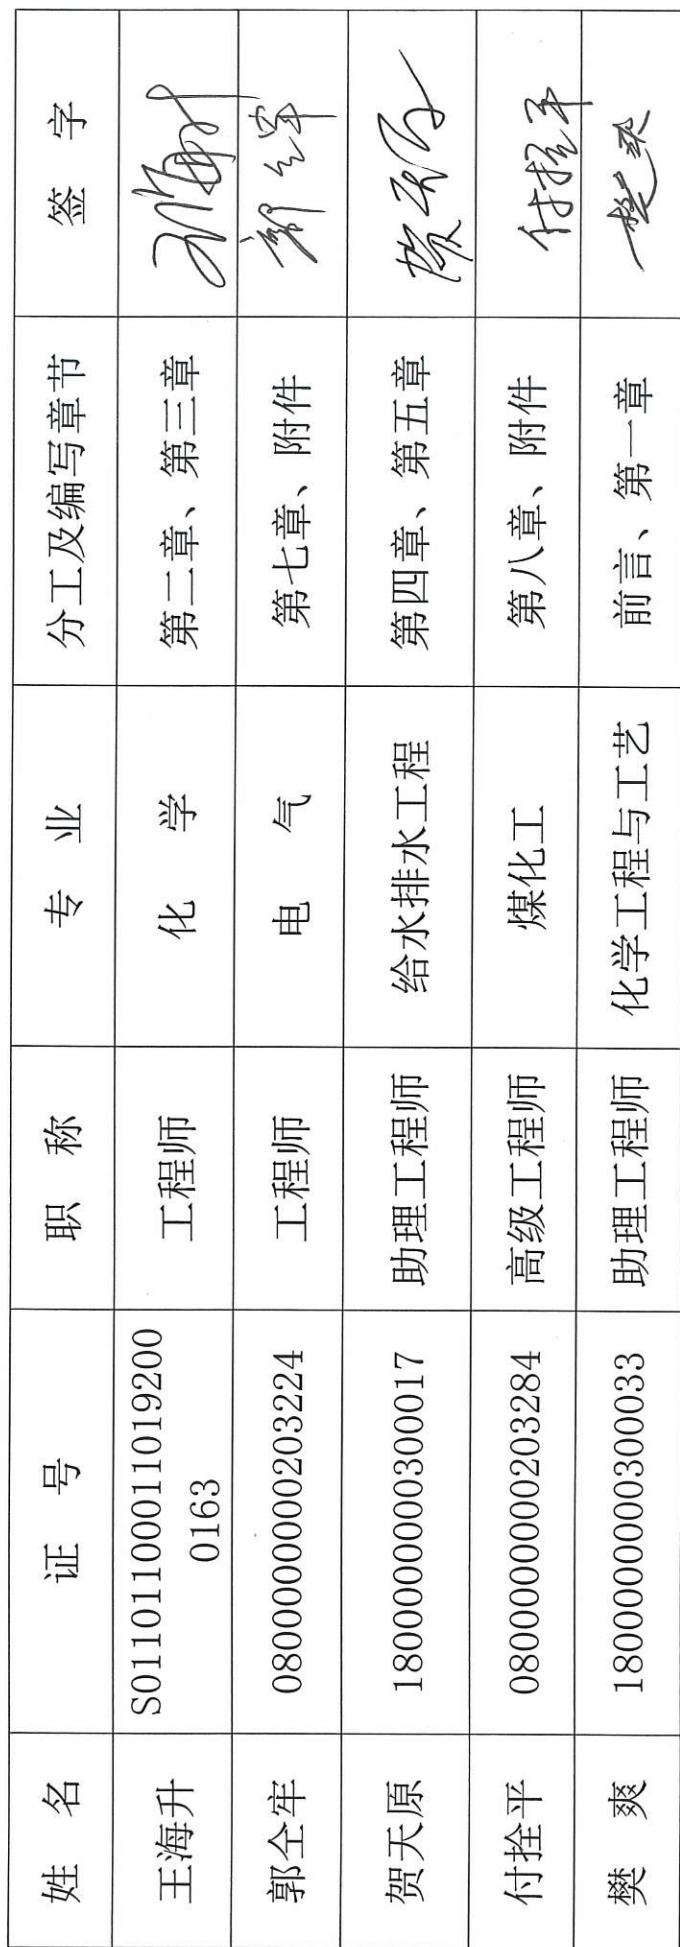 姓 名 证 号 职 称 专 业 分工及编写章节 签 字
王海升 S01101100011019200 工程师 化 学 第二章、第三章 王海升
0163
郭仝牢 0800000000203224 工程师 电 气 第七章、附件 郭仝牢
贺天原 1800000000300017 助理工程师 给水排水工程 第四章、第五章 贺天原
付拴平 0800000000203284 高级工程师 煤化工 第八章、附件 付拴平
樊 爽 1800000000300033 助理工程师 化学工程与工艺 前言、第一章 樊爽